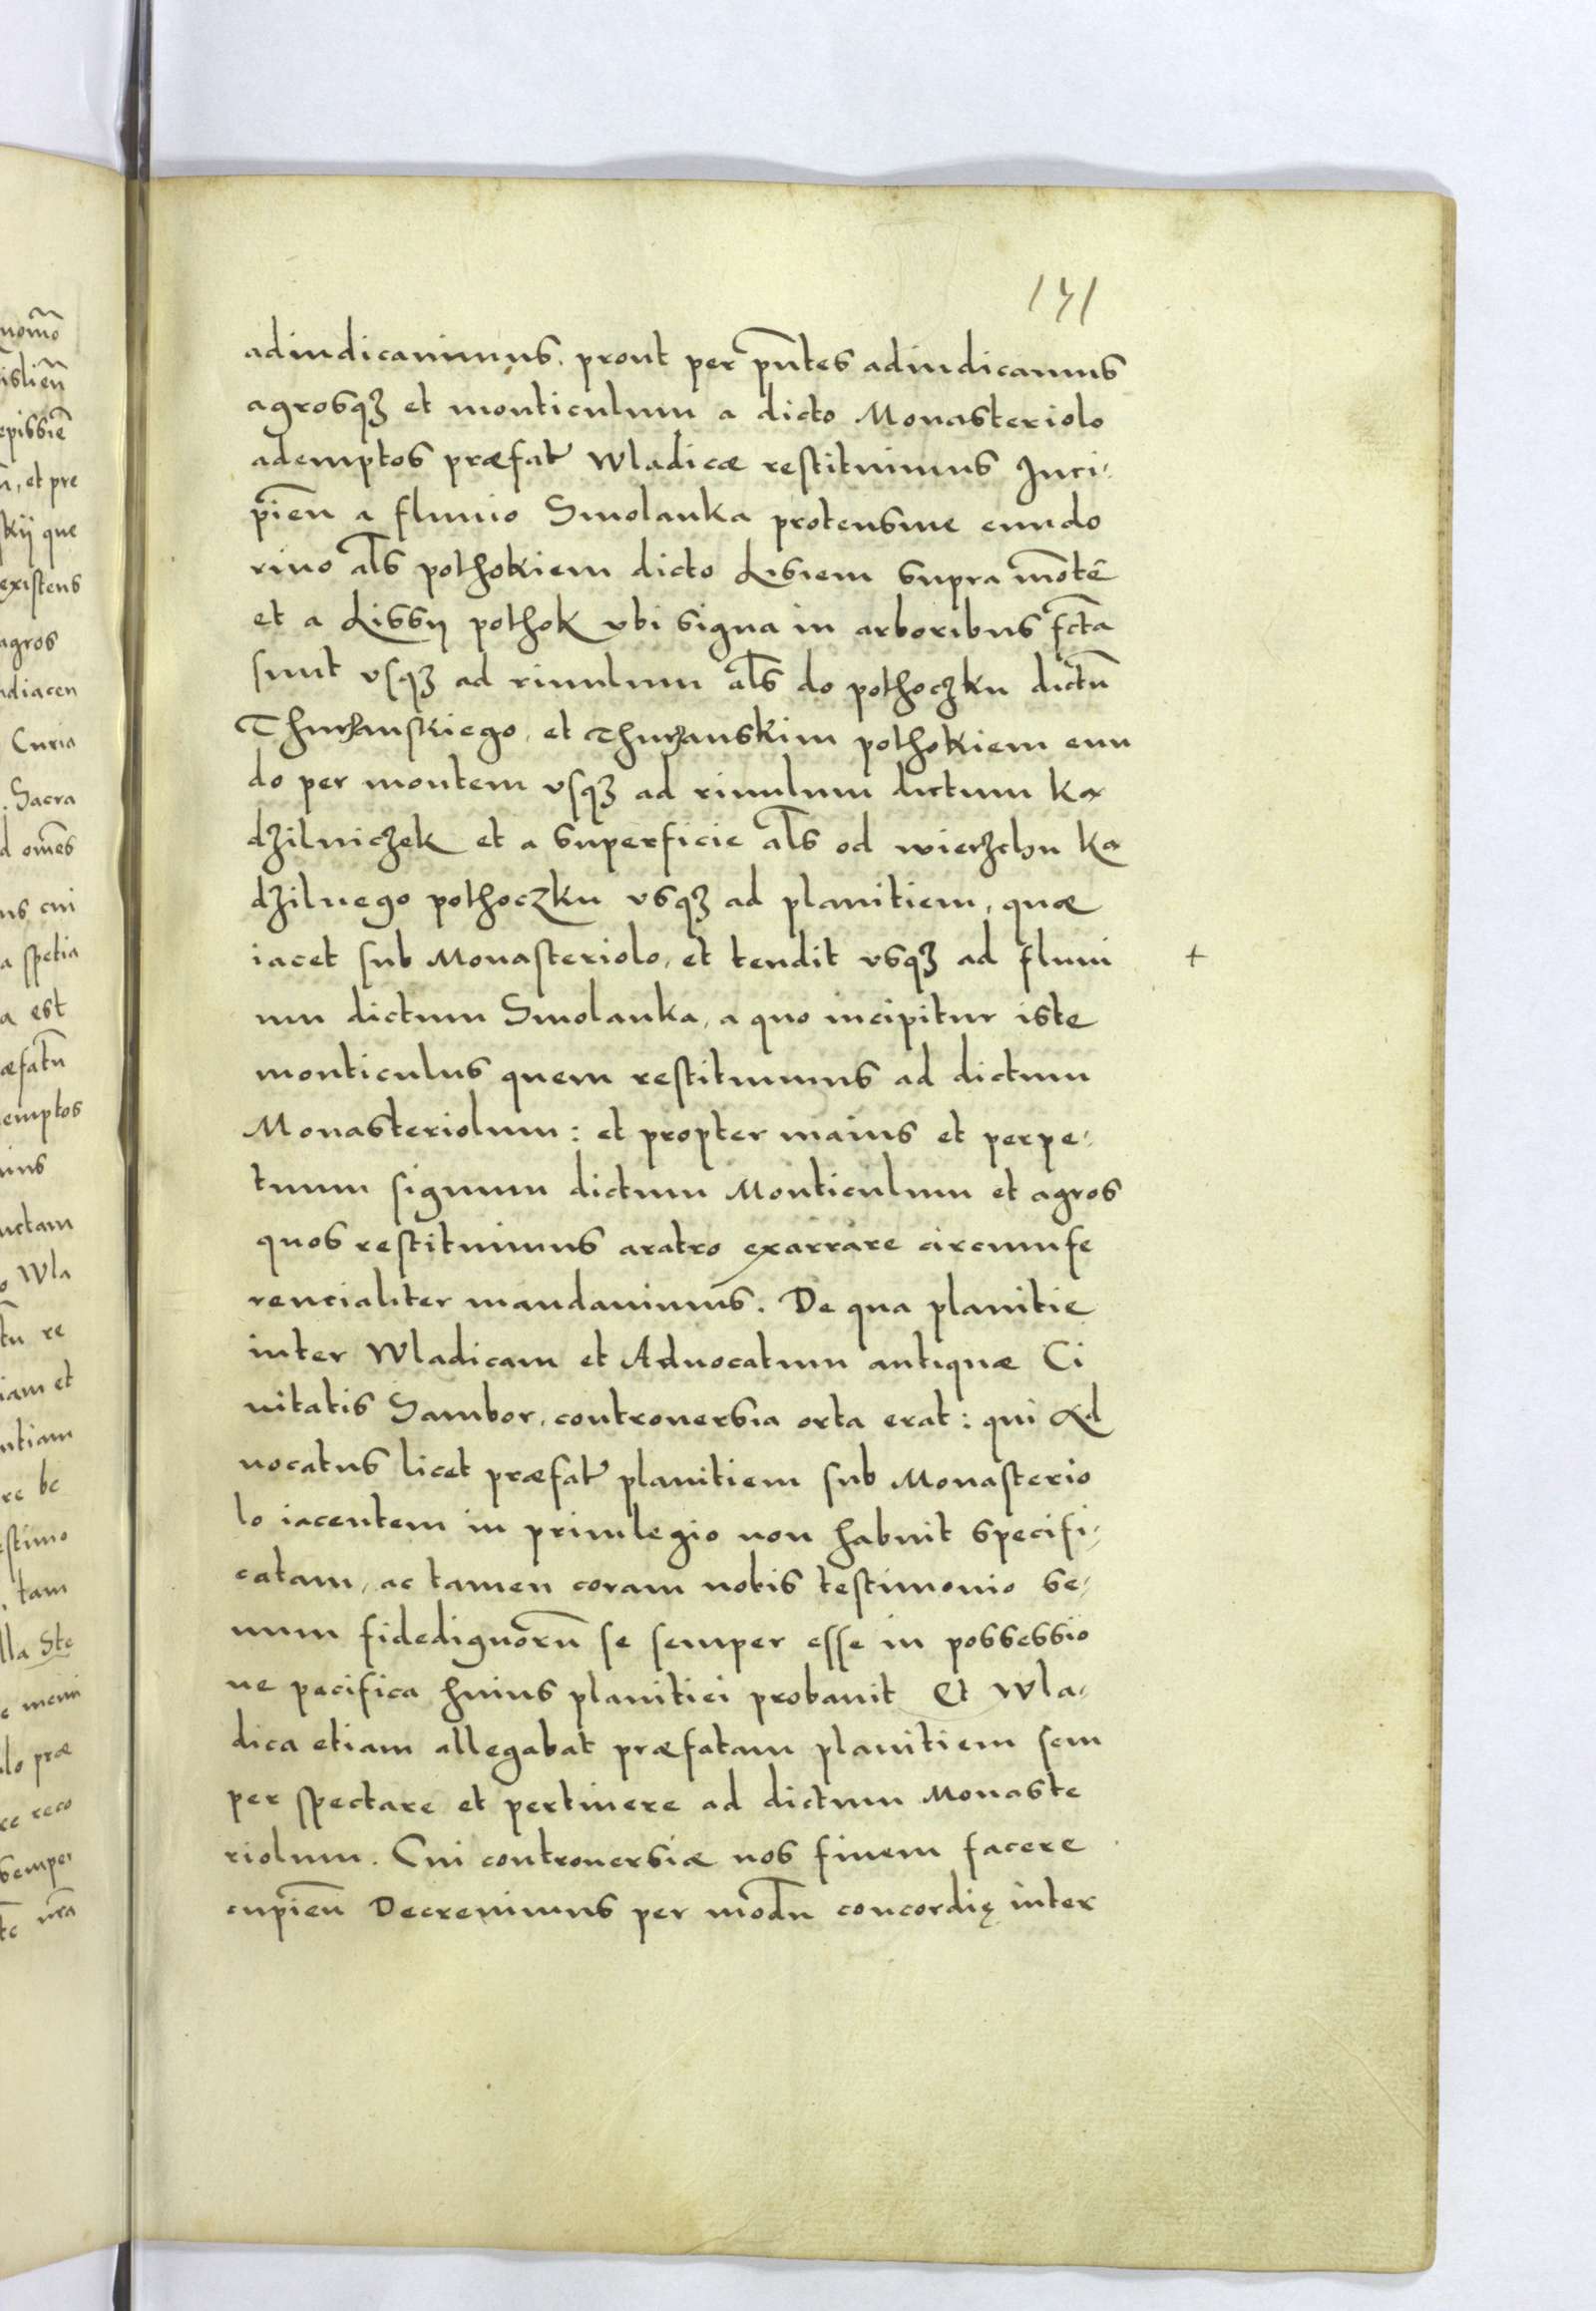 141
adiudicauimus. prout per pn̄tes adiudicamus
agrosqȝ et monticulum a dicto Monasteriolo
ademptos præfat̉ Wladicæ restituimus Inci-
pien̄ a fluuio Smolanka protensiue eundo
riuo al̄s pothokiem dicto Lisiem supra mōtē
et a Lissy pothok vbi signa in arboribus fc̄ta
sunt vsqȝ ad riuulum al̄s do pothoczku dictū
Thurzanskiego, et Thurzanskim pothokiem eun
do per montem vsqȝ ad riuulum dictum Ka
dzilniczek et a superficie al̄s od wierzchu Ka
dzilnego pothoczku vsqȝ ad planitiem, quæ
iacet sub Monasteriolo, et tendit vsqȝ ad fluui
+
um dictum Smolanka, a quo incipitur iste
monticulus quem restituimus ad dictum
Monasteriolum: et propter maius et perpe-
tuum signum dictum Monticulum et agros
quos restituimus aratro exarrare circumfe
rencialiter mandauimus. De qua planitie
inter Wladicam et Aduocatum antiquæ Ci
uitatis Sambor, controuersia orta erat: qui Ad
uocatus licet præfat̉ planitiem sub Monasterio
lo iacentem in priuilegio non habuit specifi-
catam, ac tamen coram nobis testimonio se-
num fidedignorū se semper esse in possessio
ne pacifica huius planitiei probauit Et Wla-
dica etiam allegabat præfatam planitiem sem
per spectare et pertinere ad dictum Monaste
riolum. Cui controuersiæ nos finem facere
cupien̄ Decreuimus per modū concordię inter